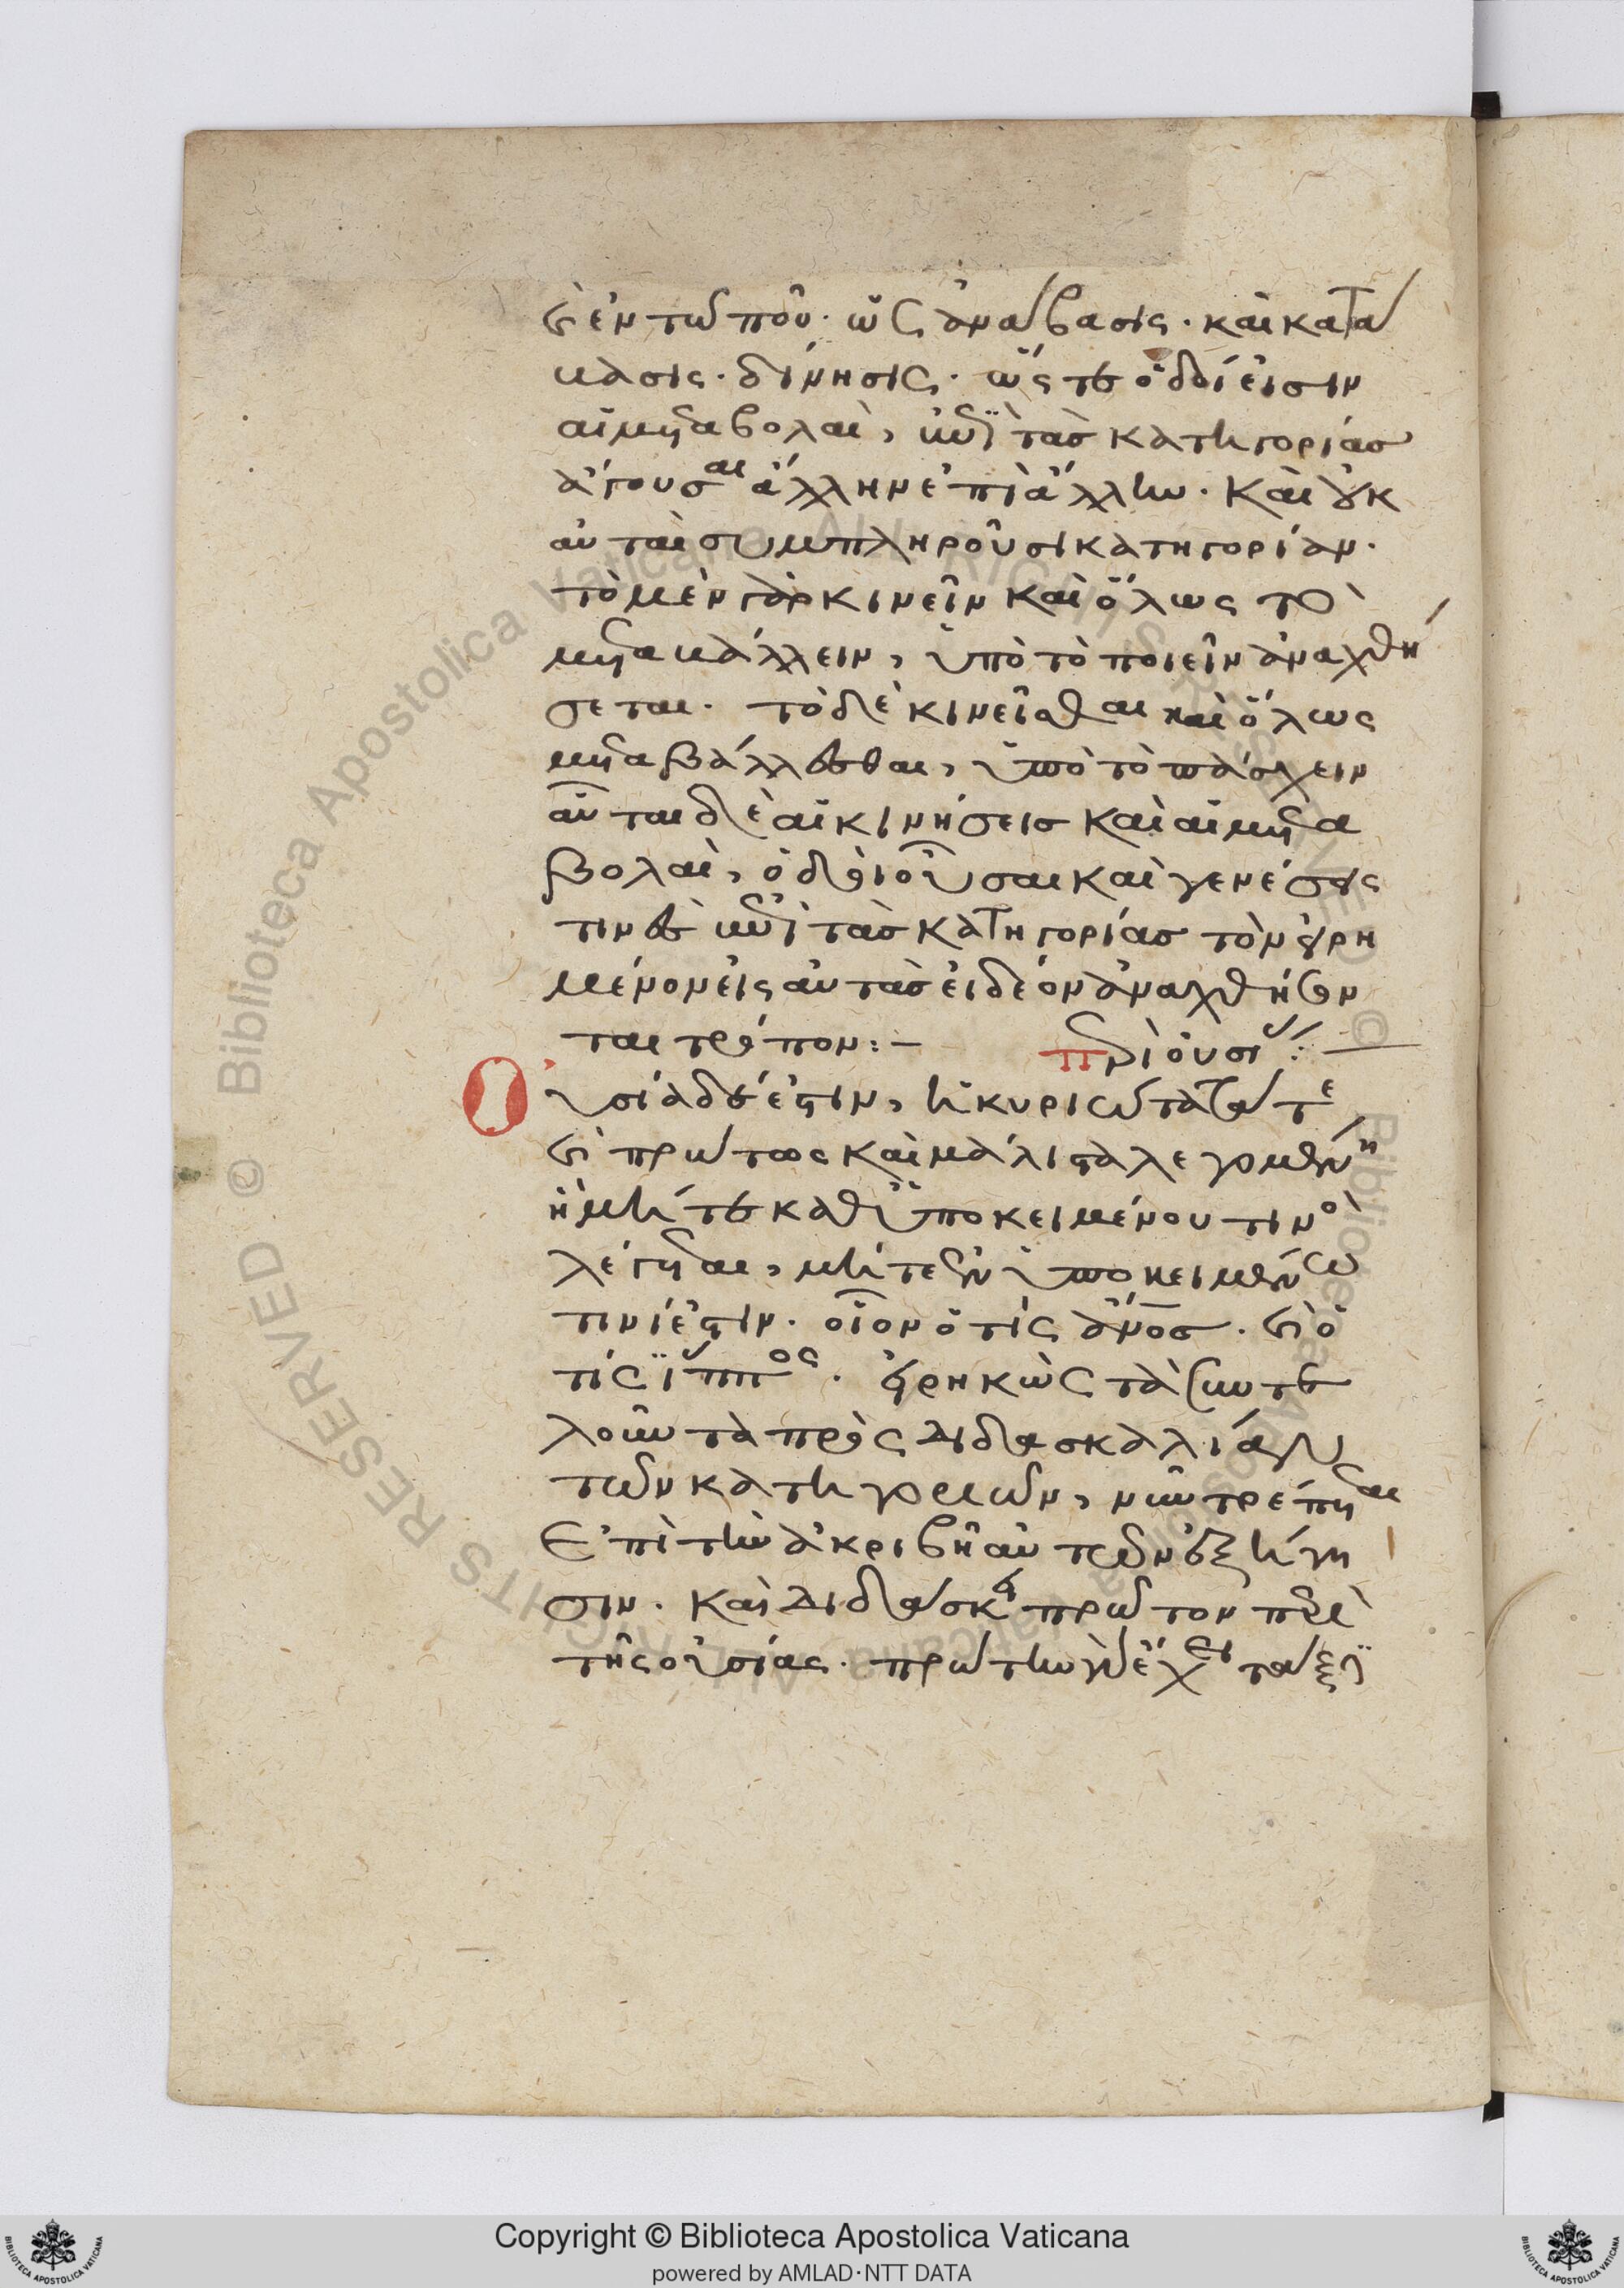 καὶ ἐν τῶ ποῦ. ὡς ἀνάβασις. καὶ κατά
βασις. δίνησις. ὥστε ὁδοί εἰσιν
αἱ μεταβολαὶ, ἐπὶ τὰς κατηγορίας
ἄγουσαι ἄλλην ἐπὶ ἄλλην. καὶ οὐκ
αὐταὶ συμπληροῦσι κατηγορίαν.
τὸ μὲν γὰρ κινεῖν καὶ ὅλως τὸ
μεταβάλλειν, ὑπὸ τὸ ποιεῖν ἀναχθή
σεται. τὸ δὲ κινεῖσθαι καὶ ὅλως
μεταβάλλεσθαι, ὑπὸ τὸ πάσχειν
αὗται δὲ αἱ κινήσεις καὶ αἱ μετα
βολαὶ, ὁδοὶ οὖσαι καὶ γενέσεις
τινὲς ἐπὶ τὰς κατηγορίας τὸν εἰρη
μένον εἰς αὐτὰς εἰ δέον ἀναχθήσον
ται τρόπον:–
περὶ οὐσί(ας):–
Οὐσία δέ ἐστιν, ἡ κυριώτατά τε
καὶ πρώτως καὶ μάλιστα λεγομένη
ἣ μήτε καθ' ὑποκειμένου τινὸς
λέγεται, μήτε ἐν ὑποκειμένω
τινί ἐστιν. οἷον ὁ τίς ἄνος. καὶ ὁ
τίς ἵππος. εἰρηκὼς τὰ συντε
λοῦντα πρὸς διδασκαλίαν
τῶν κατηγοριῶν, νῦν τρέπεται
ἐπὶ τὴν ἀκριβῆ αὐτῶν ἐξήγη
σιν. καὶ διδάσκει πρῶτον περὶ
τῆς οὐσίας. πρώτην γὰρ ἔχει τάξι
Copyright © Biblioteca Apostolica Vaticana
powered by AMLAD·NTT DATA